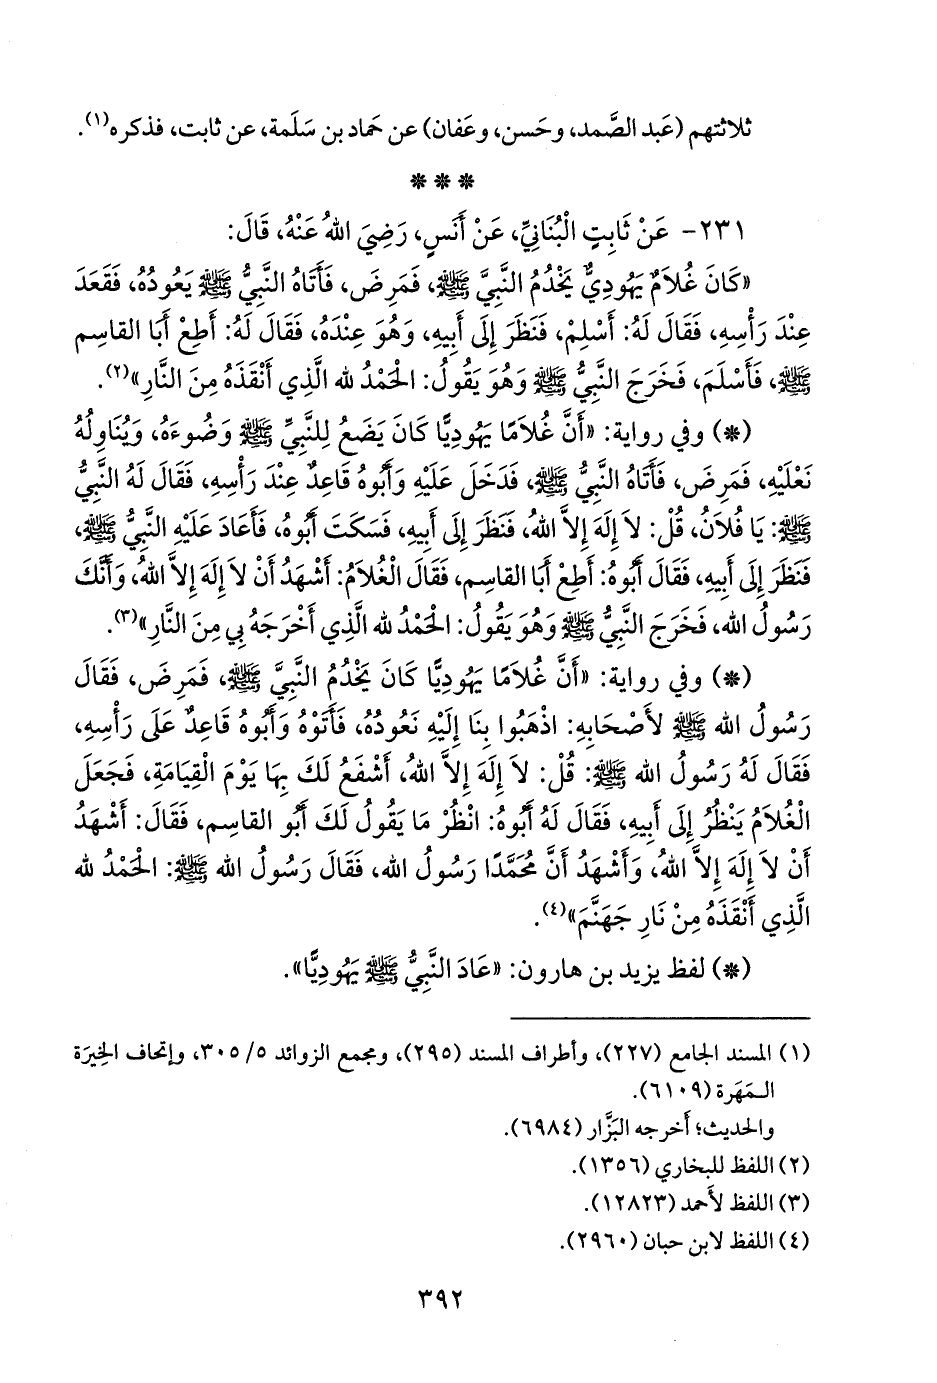 ثلاثتهم (عَبد الصَّمد، وحَسن، وعَفان) عن حَماد بن سَلَمة، عن ثابت، فذكره(١).
* * *
٢٣١- عَنْ ثَابِتٍ الْبُنَانِيِّ، عَنْ أَنَسٍ، رَضِيَ اللهُ عَنْهُ، قَالَ:
«كَانَ غُلَامٌ يَهُودِيٌّ يَخْدُمُ النَّبِيَّ ﷺ، فَمَرِضَ، فَأَتَاهُ النَّبِيُّ ﷺ يَعُودُهُ، فَقَعَدَ
عِنْدَ رَأْسِهِ، فَقَالَ لَهُ: أَسْلِمْ، فَنَظَرَ إِلَى أَبِيهِ، وَهُوَ عِنْدَهُ، فَقَالَ لَهُ: أَطِعْ أَبَا القاسِم
ﷺ، فَأَسْلَمَ، فَخَرَجَ النَّبِيُّ ﷺ وَهُوَ يَقُولُ: الحَمْدُ لله الَّذِي أَنْقَذَهُ مِنَ النَّارِ»(٢).
(*) وفي رواية: «أَنَّ غُلَامًا يَهُودِيًّا كَانَ يَضَعُ لِلنَّبِيِّ ﷺ وَضُوءَهُ، وَيُنَاوِلُهُ
نَعْلَيْهِ، فَمَرِضَ، فَأَتَاهُ النَّبِيُّ ﷺ، فَدَخَلَ عَلَيْهِ وَأَبُوهُ قَاعِدٌ عِنْدَ رَأْسِهِ، فَقَالَ لَهُ النَّبِيُّ
ﷺ: يَا فُلَانُ، قُلْ: لَا إِلَهَ إِلاَّ اللهُ، فَنَظَرَ إِلَى أَبِيهِ، فَسَكَتَ أَبُوهُ، فَأَعَادَ عَلَيْهِ النَّبِيُّ ﷺ،
فَنَظَرَ إِلَى أَبِيهِ، فَقَالَ أَبُوهُ: أَطِعْ أَبَا القاسِم، فَقَالَ الْغُلَامُ: أَشْهَدُ أَنْ لَا إِلَهَ إِلاَّ اللهُ، وَأَنَّكَ
رَسُولُ الله، فَخَرَجَ النَّبِيُّ ﷺ وَهُوَ يَقُولُ: الحَمْدُ لله الَّذِي أَخْرَجَهُ بِي مِنَ النَّارِ»(٣).
(*) وفي رواية: «أَنَّ غُلَامًا يَهُودِيًّا كَانَ يَخْدُمُ النَّبِيَّ ﷺ، فَمَرِضَ، فَقَالَ
رَسُولُ الله ﷺ لأَصْحَابِهِ: اذْهَبُوا بِنَا إِلَيْهِ نَعُودُهُ، فَأَتَوْهُ وَأَبُوهُ قَاعِدٌ عَلَى رَأْسِهِ،
فَقَالَ لَهُ رَسُولُ الله ﷺ: قُلْ: لَا إِلَهَ إِلاَّ اللهُ، أَشْفَعُ لَكَ بِهَا يَوْمَ الْقِيَامَةِ، فَجَعَلَ
الْغُلَامُ يَنْظُرُ إِلَى أَبِيهِ، فَقَالَ لَهُ أَبُوهُ: انْظُرْ مَا يَقُولُ لَكَ أَبُو القاسِم، فَقَالَ: أَشْهَدُ
أَنْ لَا إِلَهَ إِلاَّ اللهُ، وَأَشْهَدُ أَنَّ مُحَمَّدًا رَسُولُ الله، فَقَالَ رَسُولُ الله ﷺ: الحَمْدُ لله
الَّذِي أَنْقَذَهُ مِنْ نَارِ جَهَنَّمَ»(٤).
(*) لفظ يزيد بن هارون: «عَادَ النَّبِيُّ ﷺ يَهُودِيًّا».
(١) المسند الجامع (٢٢٧)، وأطراف المسند (٢٩٥)، ومجمع الزوائد ٥/ ٣٠٥، وإتحاف الخِيرَة
الـمَهَرة (٦١٠٩).
والحديث؛ أَخرجه البَزَّار (٦٩٨٤).
(٢) اللفظ للبخاري (١٣٥٦).
(٣) اللفظ لأَحمد (١٢٨٢٣).
(٤) اللفظ لابن حبان (٢٩٦٠).
٣٩٢